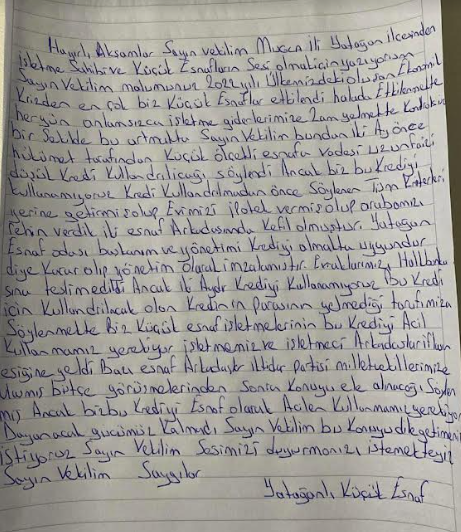 Hayırlı Akşamlar Sayın vekilim Muğla ili Yatağan ilcesinden
işletme Sahibi ve Küçük Esnafların Sesi olmak icin yazıyorum
Sayın Vekilim malumunuz 2022 yılı Ülkemizdeki oluşan Ekonomik
Krizden en çok biz Küçük Esnaflar etkilendi halada Etkilenmekte
hergün anlamsızca işletme giderlerimize Zam gelmekte Korkutucu
bir Sekilde bu artmakta Sayın Vekilim bundan iki Ay önce
hükümet tarafından Küçük ölçekli esnafa Vadesi uzun faizi
düşük Kredi Kullandırılıcağı söylendi Ancak biz bu Krediyi
Kullanamıyoruz Kredi Kullandırılmadan önce Söylenen Tüm Kriterleri
yerine getirmiş olup Evimizi ipotek vermiş olup arabamızı
rehin verdik iki esnaf Arkadasımda Kefil olmuştur. Yatağan
Esnaf odası başkanım ve yönetimi Krediyi almakta uygundur
diye Karar alıp yönetim olarak imzalamıştır. Evraklarımızı Halkbanka
sına teslim edildi Ancak iki Aydır Krediyi Kullanamıyoruz bu Kredi
için Kullandırılacak olan Kredinin Parasının gelmediği tarafımıza
Söylenmekte Biz Küçük esnaf işletmelerinin bu Krediyi Acil
Kullanmamız gerekiyor işletmemiz ve işletmeci Arkadaşlar iflasın
eşiğine geldi Bazı esnaf Arkadaşlar iktidar partisi milletvekillerimize
bütçe görüşmelerinden Sonra Konuyu ele alınacağı Söylen
miş Ancak biz bu Krediyi Esnaf olarak Acilen Kullanmamız gerekiyor
Dayanacak gücümüz Kalmadı Sayın Vekilim bu Konuyu dile getirmeni
istiyoruz Sayın Vekilim Sesimizi duyurmanızı istemekteyiz
Sayın Vekilim Saygılar
Yatağanlı Küçük Esnaf